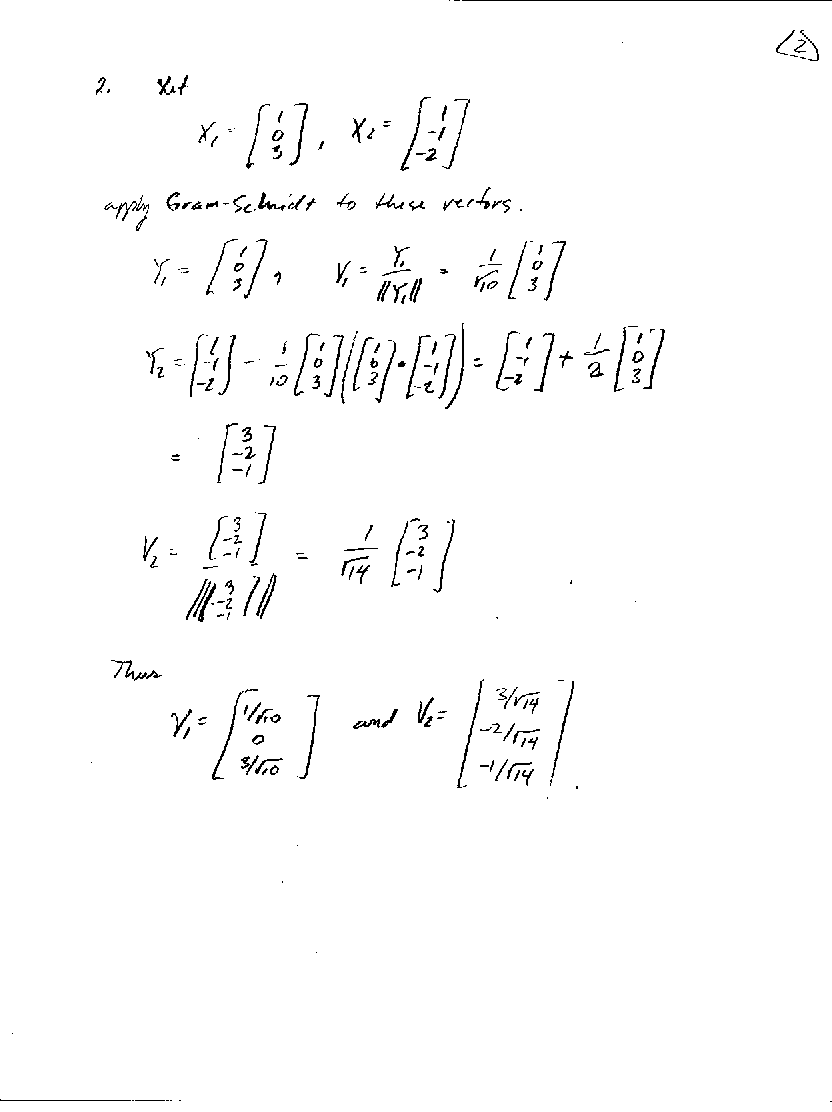 (2)
2. Let
X₁ = [1 0 3], X₂ = [1 -1 -2]
apply Gram-Schmidt to these vectors.
Y₁ = [1 0 3], V₁ = Y₁/||Y₁|| = 1/√10 [1 0 3]
Y₂ = [1 -1 -2] - 1/10 [1 0 3] ([1 0 3] • [1 -1 -2]) = [1 -1 -2] + 1/2 [1 0 3]
= [3 -2 -1]
V₂ = [3 -2 -1] / ||[3 -2 -1]|| = 1/√14 [3 -2 -1]
Thus
V₁ = [1/√10 0 3/√10] and V₂ = [3/√14 -2/√14 -1/√14].